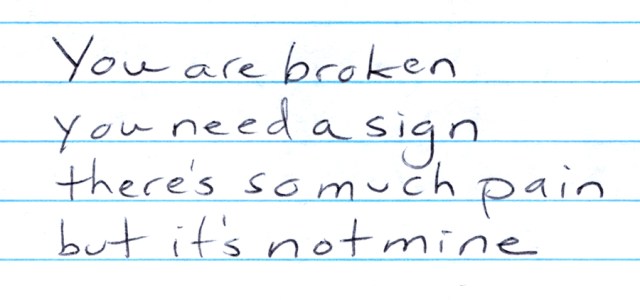 You are broken
you need a sign
there's so much pain
but it's not mine